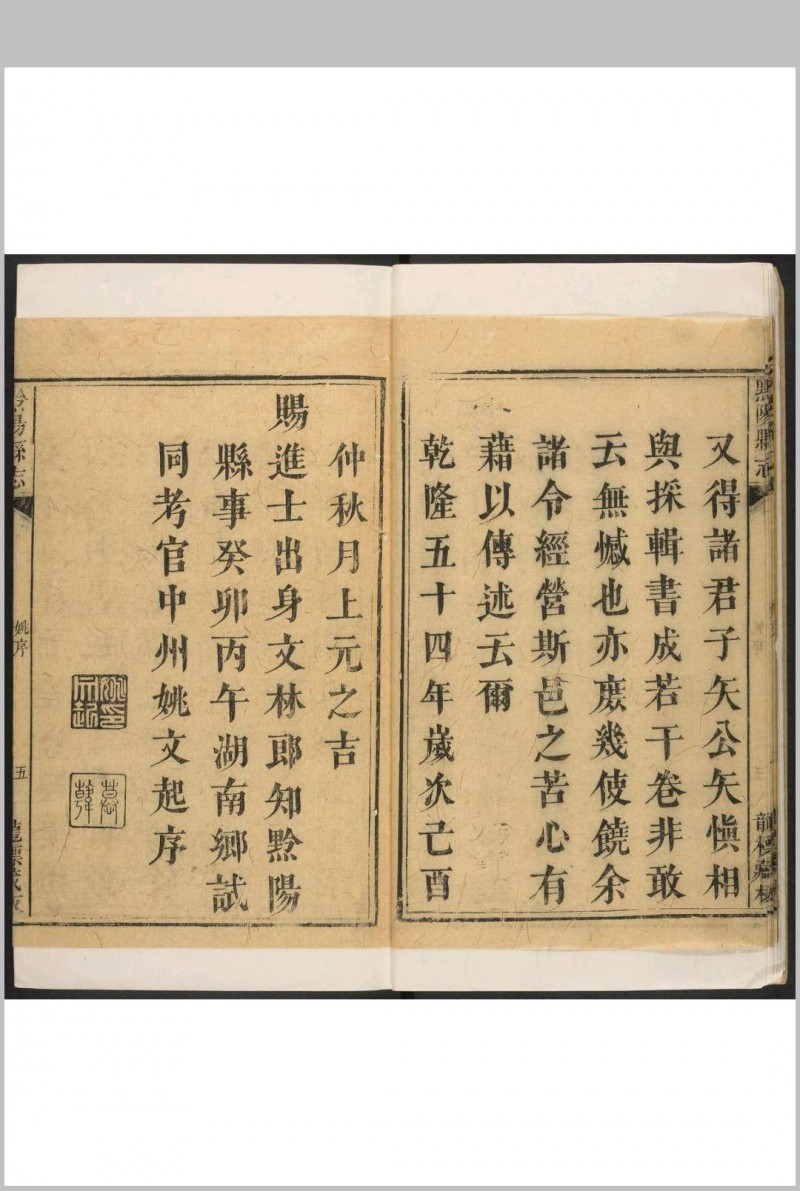 黔陽縣志
又得諸君子矢公矢愼相
與採輯書成若干卷非敢
云無憾也亦庶幾使饒余
諸令經營斯邑之苦心有
藉以傳述云爾
乾隆五十四年歲次己酉
仲秋月上元之吉
賜進士出身文林郎知黔陽
縣事癸卯丙午湖南鄉試
同考官中州姚文起序
姚序
五